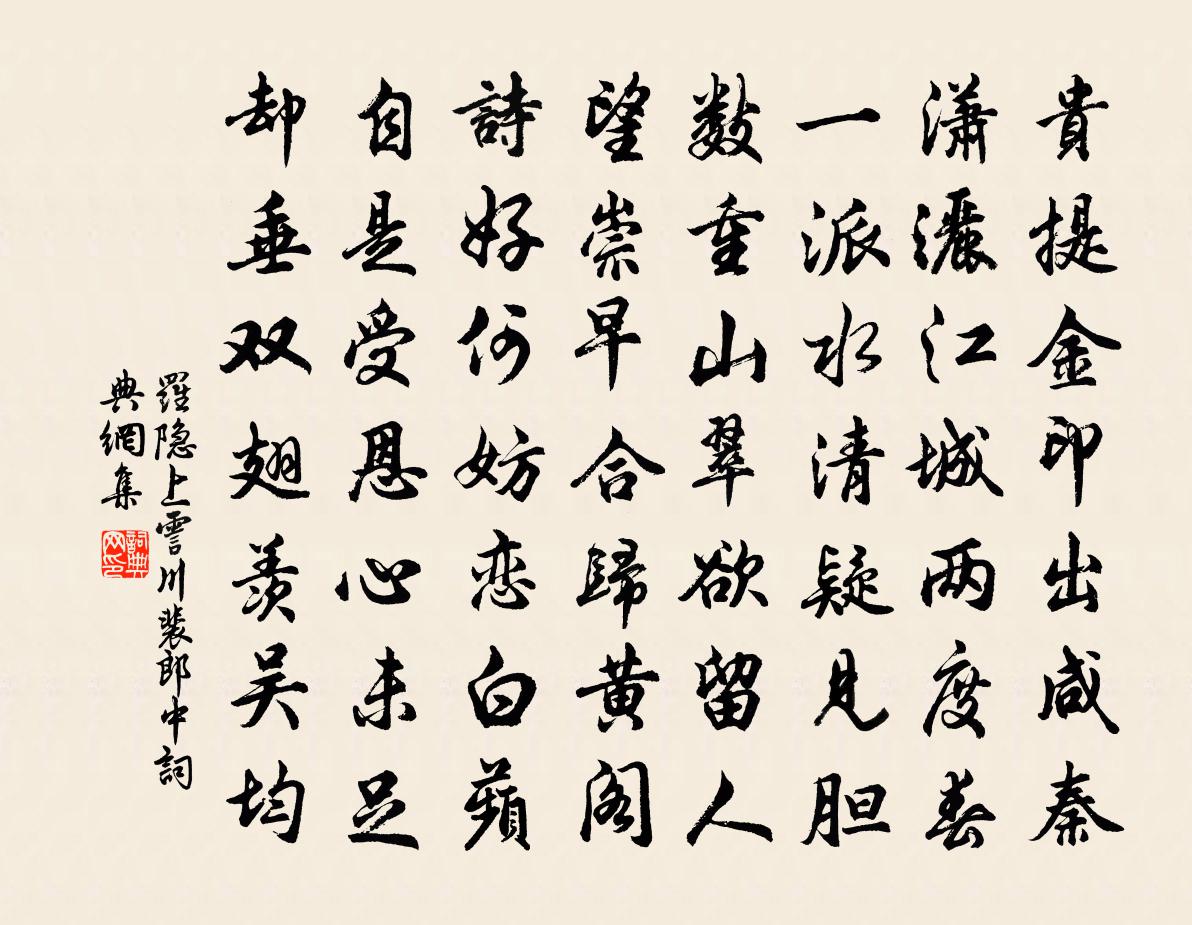 貴提金印出咸秦
瀟灑江城两度春
一派水清疑見胆
数重山翠欲留人
望崇早合歸黄阁
詩好何妨恋白蘋
自是受恩心未足
却垂双翅羨吴均
羅隐上霅川裴郎中詞
典網集
詞典网印